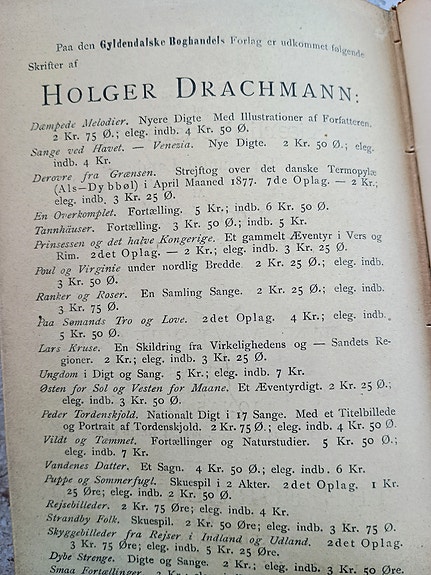 Paa den Gyldendalske Boghandels Forlag er udkommet følgende
Skrifter af
HOLGER DRACHMANN:
Dæmpede Melodier. Nyere Digte Med Illustrationer af Forfatteren.
2 Kr. 75 Ø.; eleg. indb. 4 Kr. 50 Ø.
Sange ved Havet. — Venezia. Nye Digte. 2 Kr. 50 Ø.; eleg.
indb. 4 Kr.
Derovre fra Grænsen. Strejftog over det danske Termopylæ
(Als—Dybbøl) i April Maaned 1877. 7de Oplag. — 2 Kr.;
eleg. indb. 3 Kr. 25 Ø.
En Overkomplet. Fortælling. 5 Kr.; indb. 6 Kr. 50 Ø.
Tannhäuser. Fortælling. 3 Kr. 50 Ø.; indb. 5 Kr.
Prinsessen og det halve Kongerige. Et gammelt Æventyr i Vers og
Rim. 2det Oplag. — 2 Kr.; eleg. indb. 3 Kr. 25 Ø.
Poul og Virginie under nordlig Bredde. 2 Kr. 25 Ø.; eleg. indb.
3 Kr. 50 Ø.
Ranker og Roser. En Samling Sange. 2 Kr. 25 Ø.; eleg. indb.
3 Kr. 75 Ø.
Paa Sømands Tro og Love. 2det Oplag. 4 Kr.; eleg. indb.
5 Kr. 50 Ø.
Lars Kruse. En Skildring fra Virkelighedens og — Sandets Re-
gioner. 2 Kr.; eleg. indb. 3 Kr. 25 Ø.
Ungdom i Digt og Sang. 5 Kr.; eleg. indb. 7 Kr.
Østen for Sol og Vesten for Maane. Et Æventyrdigt. 2 Kr. 25 Ø.;
eleg. indb. 3 Kr. 50 Ø.
Peder Tordenskjold. Nationalt Digt i 17 Sange. Med et Titelbillede
og Portrait af Tordenskjold. 2 Kr. 75 Ø.; eleg. indb. 4 Kr. 50 Ø.
Vildt og Tæmmet. Fortællinger og Naturstudier. 5 Kr. 50 Ø.;
eleg. indb. 7 Kr.
Vandenes Datter. Et Sagn. 4 Kr. 50 Ø.; eleg. indb. 6 Kr.
Puppe og Sommerfugl. Skuespil i 2 Akter. 2det Oplag. 1 Kr.
25 Øre; eleg. indb. 2 Kr. 50 Ø.
Rejsebilleder. 2 Kr. 75 Øre; eleg. indb. 4 Kr.
Strandby Folk. Skuespil. 2 Kr. 50 Øre; eleg. indb. 3 Kr. 75 Ø.
Skyggebilleder fra Rejser i Indland og Udland. 2det Oplag.
3 Kr. 75 Øre; eleg. indb. 5 Kr. 25 Øre.
Dybe Strenge. Digte og Sange. 2 Kr.; eleg. indb. 3 Kr. 25 Ø.
Smaa Fortællinger.